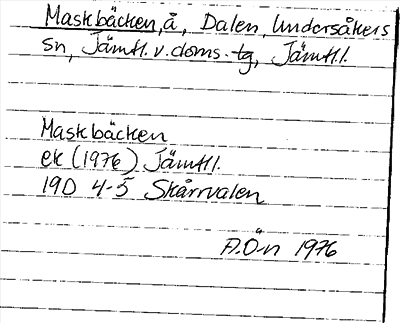 Maskbäcken, å, Dalen, Undersåkers
sn, Jämtl. v. doms. tg, Jämtl.
Maskbäcken
ek (1976) Jämtl.
19D 4-5 Skårrvalen
A.Ö-n 1976